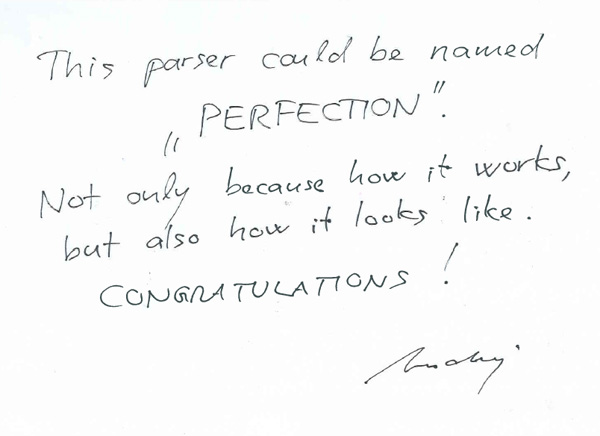 This parser could be named
„PERFECTION".
Not only because how it works,
but also how it looks like.
CONGRATULATIONS!